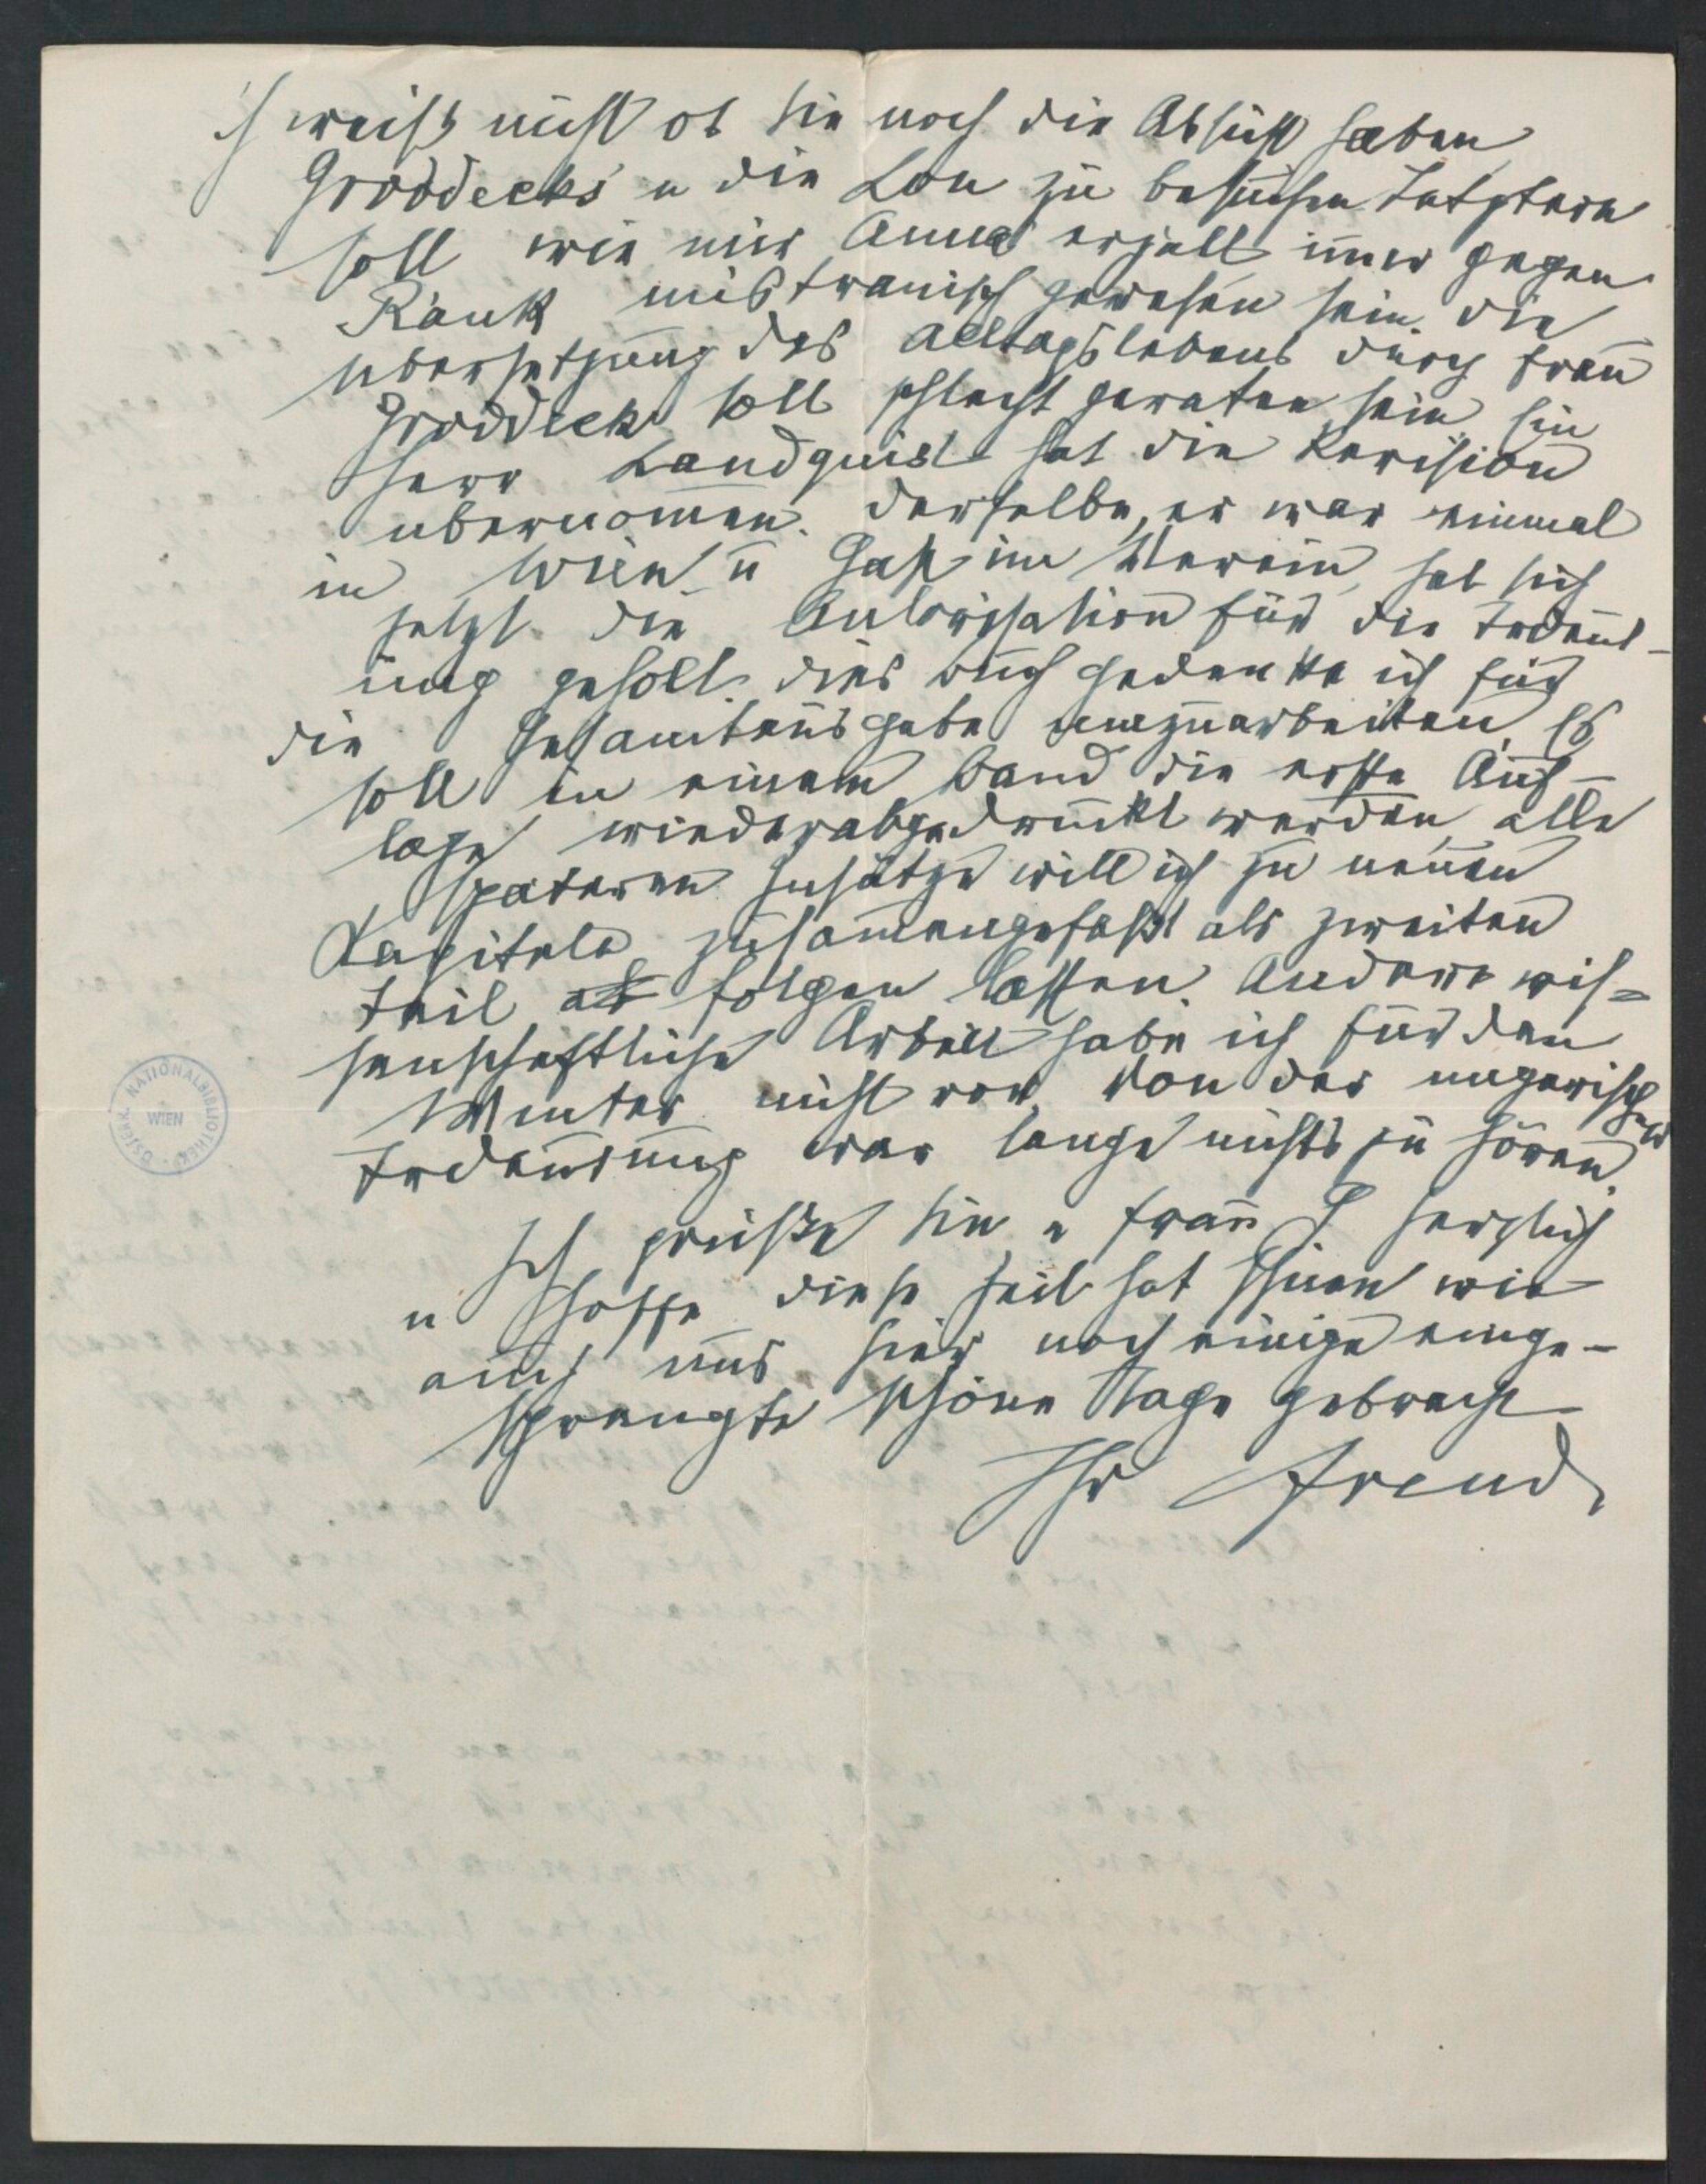 Ich weiß nicht ob Sie noch die Absicht haben
Groddecks u die Lou zu besuchen. Letztere
soll wie mir Anna erzält im̄er gegen
Rank mistrauisch gewesen sein. Die
Übersetzung des Alltagslebens durch Frau
Groddeck soll schlecht geraten sein, ein
Herr Landquist hat die Revision
übernom̄en. Derselbe, er war einmal
in Wien u Gast im Verein, hat sich
jetzt die Autorisation für die Trdeut-
ung geholt. Dies Buch gedenke ich für
die Gesamtausgabe umzuarbeiten. Es
soll in einem Band die erste Auf-
lage wiederabgedruckt werden, alle
späteren Zusätze will ich zu neuen
Kapiteln zusam̄engefaßt als zweiten
Teil folgen lassen. Andere wis-
senschaftliche Arbeit habe ich für den
Winter nicht vor. Von der ungarischen
Trdeutung war lange nichts zu hören.
Ich grüße Sie u Frau G. herzlich
u hoffe diese Zeit hat Ihnen wie
auch uns hier noch einige einge-
sprengte schöne Tage gebracht
Ihr Freud
ÖSTERR. NATIONALBIBLIOTHEK
WIEN